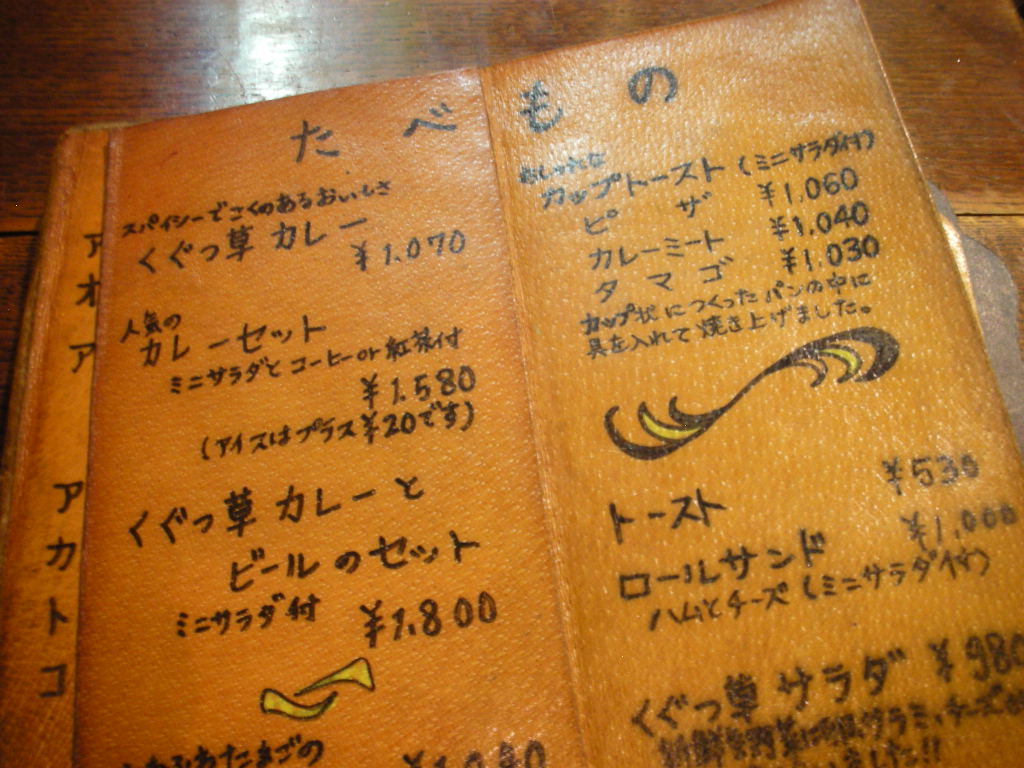 たべもの
スパイシーでこくのあるおいしさ
くぐっ草カレー
¥1,070
人気の
カレーセット
ミニサラダとコーヒーor紅茶付
¥1,580
(アイスはプラス¥20です)
くぐっ草カレーと
ビールのセット
ミニサラダ付 ¥1,800
たまごの
おしゃれな
カップトースト (ミニサラダ付)
ピザ ¥1,060
カレーミート ¥1,040
タマゴ ¥1,030
カップ状につくったパンの中に
具を入れて焼き上げました。
トースト ¥530
ロールサンド ¥1,000
ハムとチーズ (ミニサラダ付)
くぐっ草サラダ ¥980
ました!!
ア
オ
ア
ア
カ
ト
コ